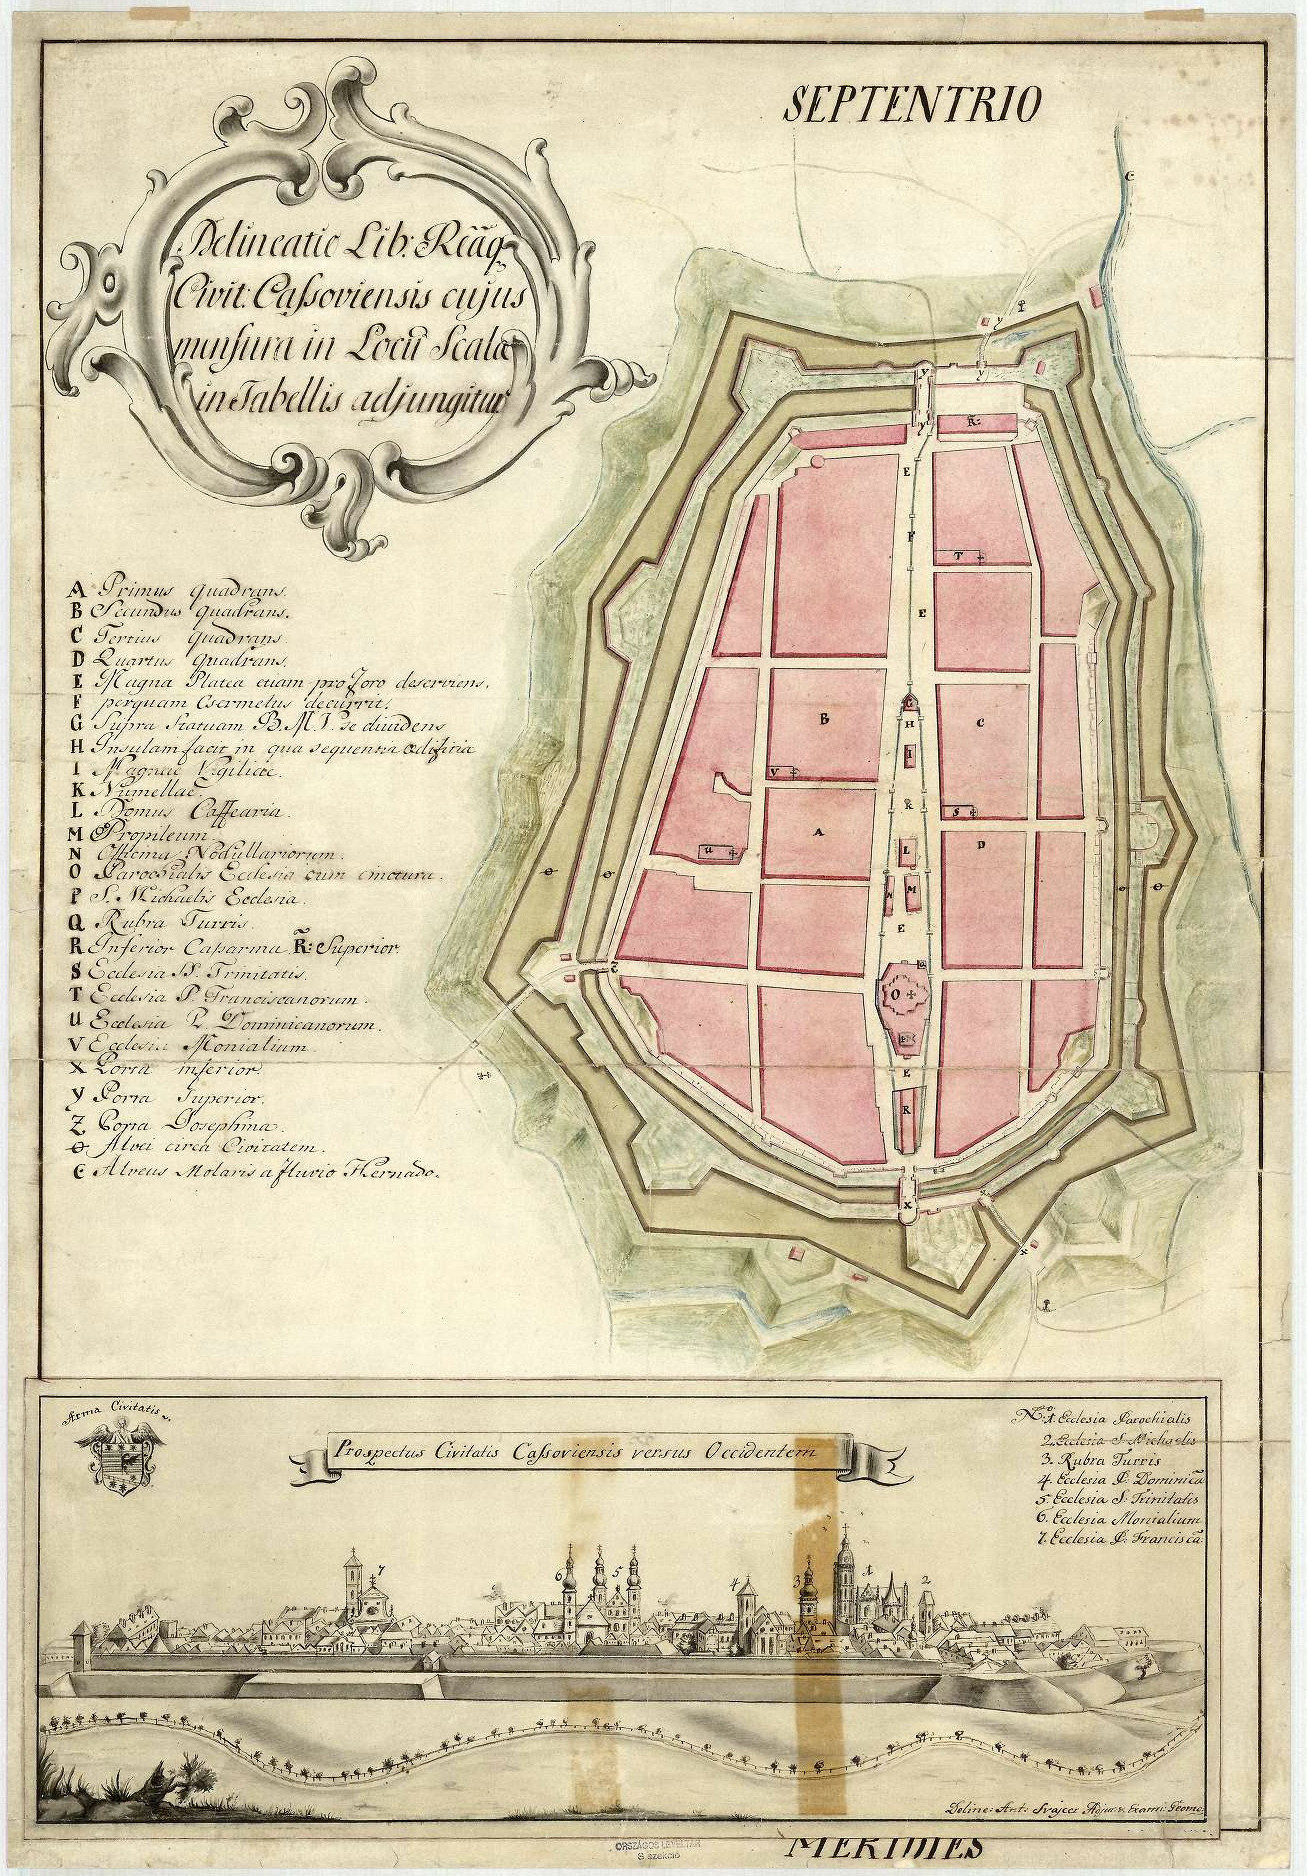 SEPTENTRIO
Delineatio Lib: Reãq
Civit: Caſsoviensis cujus
mensura in Locũ Scalæ
in Tabellis adjungitur
A Primus Quadrans.
B Secundus Quadrans.
C Tertius Quadrans
D Quartus Quadrans.
E Magna Platea etiam pro Foro deserviens.
F perquam Csermelus decurrit.
G Supra Statuam B.M.V. se dividens
H Insulam facit in qua sequentia ædificia
I Magnae Vigiliae.
K Numellae.
L Domus Caffearia.
M Propileum
N Officina Nodullariorum.
O Parochialis Ecclesia cum cinctura.
P S. Michaelis Ecclesia.
Q Rubra Turris.
R Inferior Caſsarma. R̃: Superior.
S Ecclesia SS. Trinitatis.
T Ecclesia P. Franciscanorum.
U Ecclesia P. Dominicanorum.
V Ecclesia Monialium
X Porta inferior.
y Porta Superior.
Z Porta Josephina.
ɵ Alvei circa Civitatem.
C Alveus Molaris a fluvio Hernado.
Arma Civitatis
Prospectus Civitatis Caſsoviensis versus Occidentem
No. 1. Ecclesia Parochialis
2. Eclesia S Michaelis
3. Rubra Turris
4. Ecclesia P. Dominicã
5. Ecclesia S. Trinitatis
6. Ecclesia Monialium
7. Ecclesia P. Franciscã
7 6 5 4 3 1 2
Deline: Ant: Svajcer Adju: &. Exami: Geome.
MERIDIES
ORSZÁGOS LEVÉLTÁR
S szekció